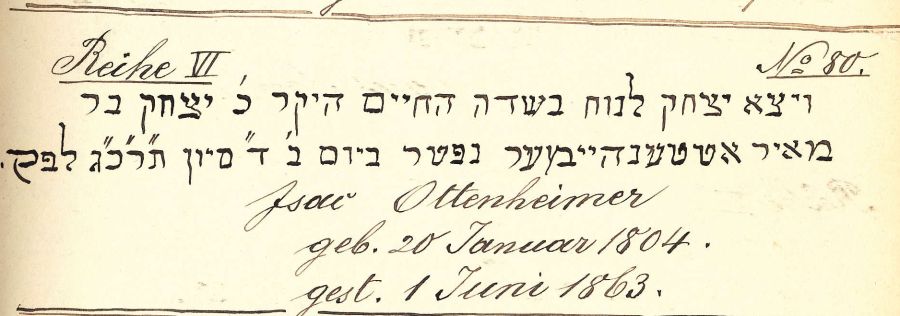 Reihe VI No 80.
ויצא יצחק לנוח בשדה החיים היקר כ' יצחק בר
מאיר אטטענהיימער נפטר ביום ב' ד" סיון ת"ר"כ"ג לפק.
Isac Ottenheimer
geb. 20 Januar 1804.
gest. 1 Juni 1863.